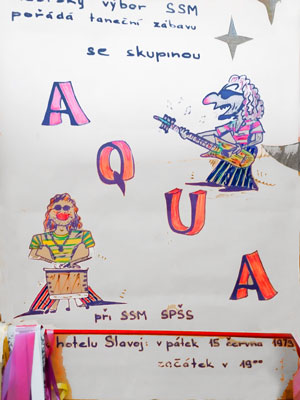 výbor SSM
pořádá taneční zábavu
se skupinou
A
Q
U
A
při SSM SPŠS
hotelu Slavoj: v pátek 15 června 1973
začátek v 19⁰⁰